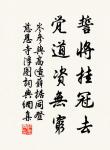 誓將挂冠去
覺道資無窮
岑參與高適薛據同登
慈恩寺浮圖詞典網喜